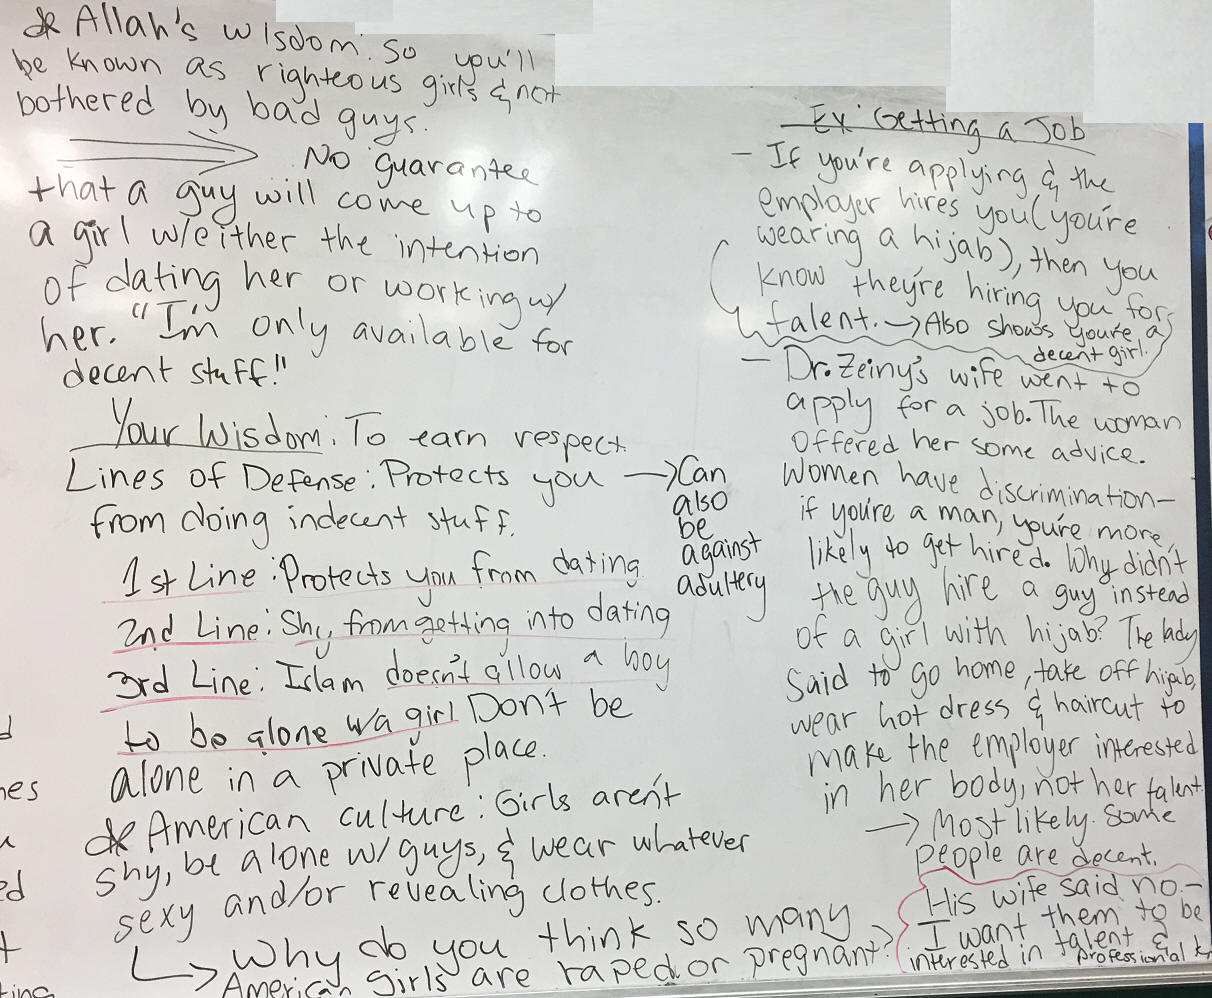 * Allah's wisdom. So you'll
be known as righteous girls & not
bothered by bad guys.
No guarantee
that a guy will come up to
a girl w/either the intention
of dating her or working w/
her. "I'm only available for
decent stuff!"
Your Wisdom: To earn respect
Lines of Defense: Protects you
from doing indecent stuff.
→ Can
also
be
against
adultery
1st Line: Protects you from dating
2nd Line: Shy from getting into dating
3rd Line: Islam doesn't allow a boy
to be alone w/a girl Don't be
alone in a private place.
* American culture: Girls aren't
shy, be alone w/ guys, & wear whatever
sexy and/or revealing clothes.
↳ Why do you think so many
American girls are raped or pregnant?
Ex: Getting a Job
- If you're applying & the
employer hires you (you're
wearing a hijab), then you
know they're hiring you for
talent. → Also shows you're a
decent girl.
- Dr. Zeiny's wife went to
apply for a job. The woman
offered her some advice.
Women have discrimination-
if you're a man, you're more
likely to get hired. Why didn't
the guy hire a guy instead
of a girl with hijab? The lady
said to go home, take off hijab,
wear hot dress & haircut to
make the employer interested
in her body, not her talent.
→ Most likely. Some
people are decent.
His wife said no.-
I want them to be
interested in talent &
professional